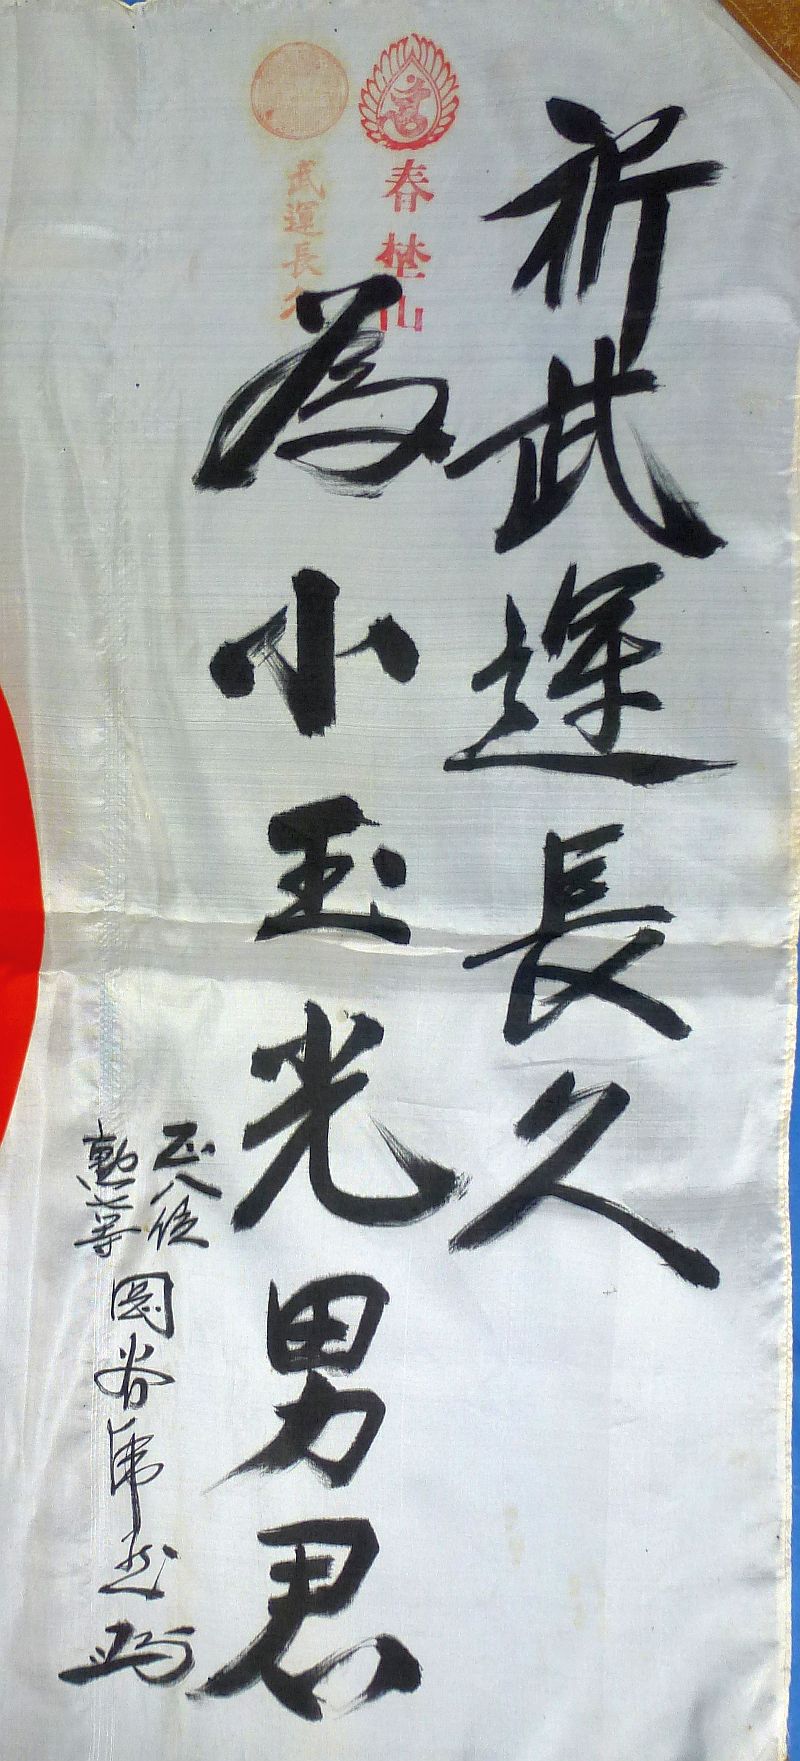 祈武運長久
春埜山
武運長久
為小玉光男君
正八位
勲六等
岡谷虎之助